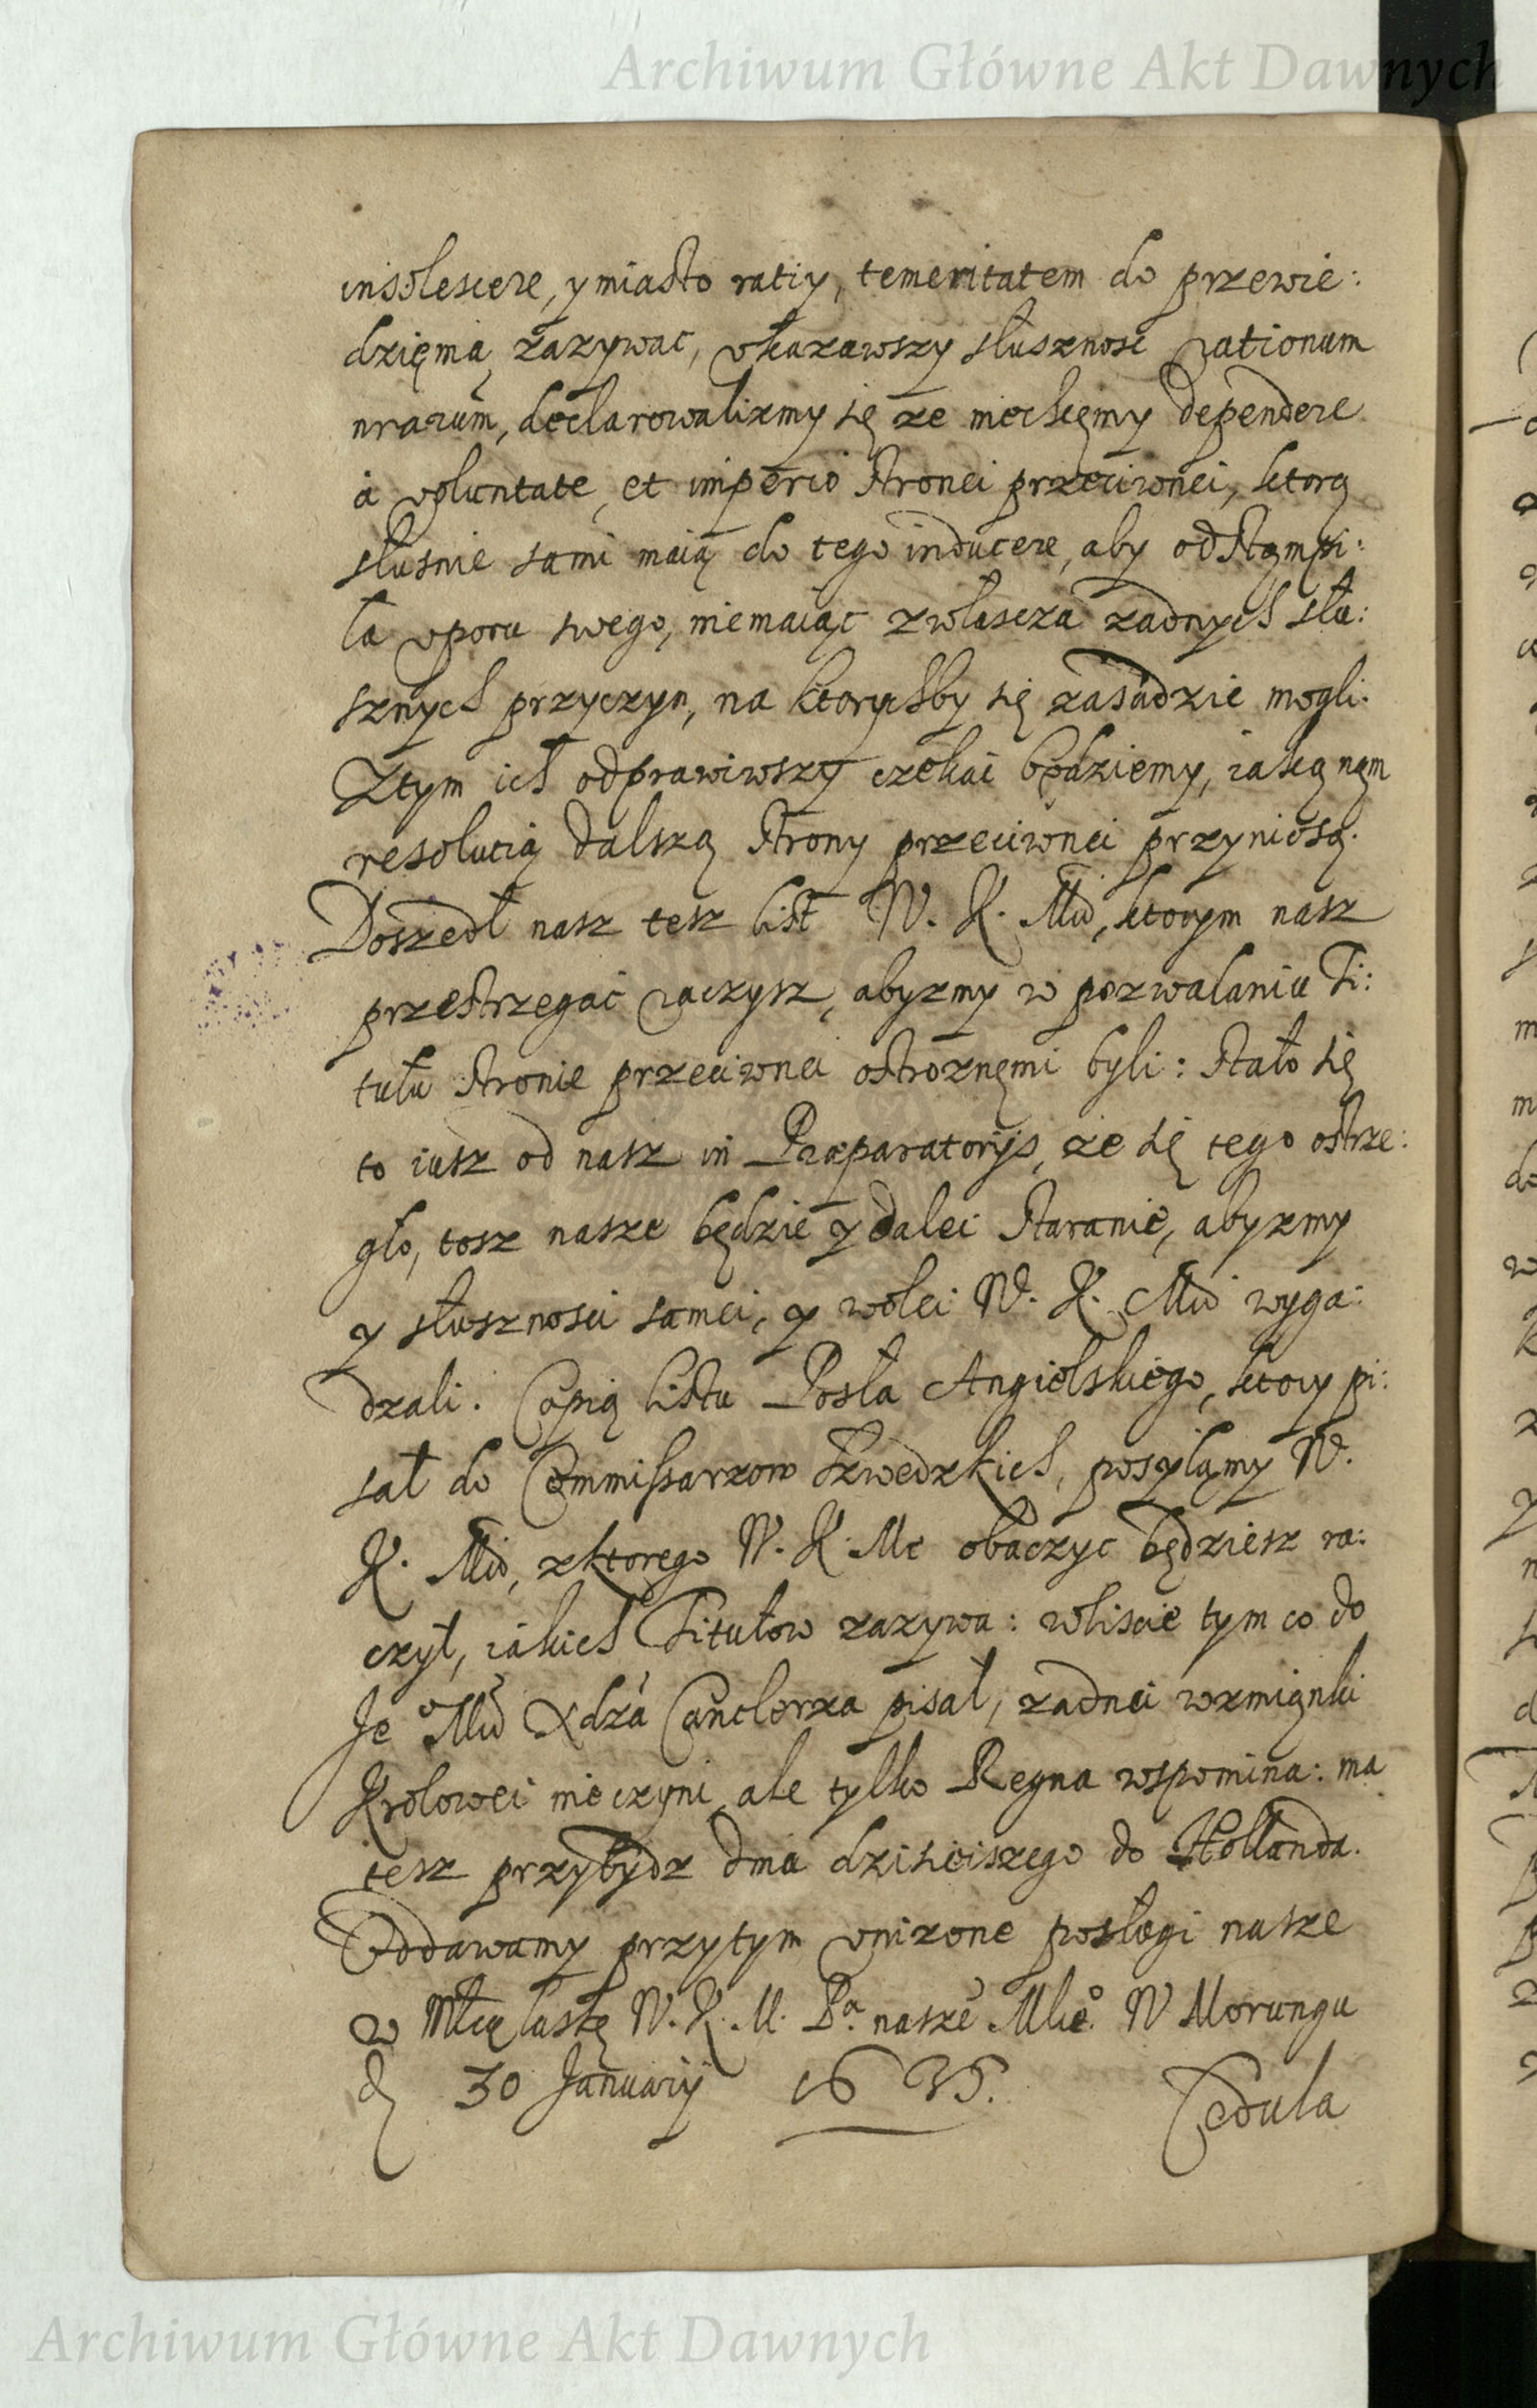 Archiwum Główne Akt Dawnych
insolescere, y miasto ratiy, temeritatem do przewie:
dzięnia zazywac, vkazawszy słusznosc rationum
nrarum, declarowalizmy się ze niechcęmy dependere
a voluntate, et imperio stronei przeciwnei, ktorą
słusnie sami maią do tego inducere, aby odstąmpi:
ła vporu swego, niemaiąc zwłascza zadnych słu:
sznych przyczyn, na ktorychby się zasadzic mogli.
Ztym ich odprawiwszy czekac będziemy, iaką nąm
resolucią dalszą strony przeciwnei przyniosą.
Doszedł nasz tesz list W. K. Mci, ktorym nasz
przestrzegac raczysz, abyzmy w pozwalaniu Ti:
tułu stronie przeciwnei ostroznęmi byli: stało się
to iusz od nasz in Praeparatorijs, ze się tego ostrze:
gło, tosz nasze będzie y dalei staranie, abyzmy
y słusznosci samei, y wolei W. K. Mci wyga:
dzali. Copią listu Posła Angielskiego, ktory pi:
sał do Commissarzow Szwedzkich, posyłąmy W.
K. Mci, zktorego W. K. Mc obaczyc będziesz ra:
czył, iakich Titułow zazywa: wliscie tym co do
Je° Mci Xdza Canclerza pisał, zadnei wzmiąnki
Krolowei nieczyni, ale tylko Regna wspomina: ma
tesz przybydz dnia dzisieiszego do Hollanda.
Oddawamy przytym vnizone posługi nasze
w Młcę łaskę W. K. M. Pa. nasze° Mlie°. W Morungu
d 30 Januarij 1635. Cedula
Archiwum Główne Akt Dawnych